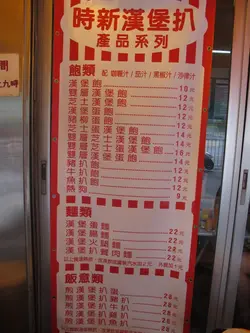 時新漢堡扒
產品系列
飽類 配 咖喱汁 / 茄汁 / 黑椒汁 / 沙律汁
漢堡飽 10元
雙層漢堡飽 14元
芝士漢堡飽 12元
漢堡蛋飽 12元
豬柳蛋飽 12元
芝士蛋漢堡飽 14元
雙層芝士漢堡飽 16元
雙層漢堡蛋飽 16元
豬扒飽 12元
牛扒飽 12元
魚扒飽 12元
熱狗 9元
麵類
漢堡蛋麵 22元
漢堡腸麵 22元
漢堡火腿麵 22元
漢堡餐肉麵 22元
飯意類
煎漢堡扒蛋 28元
煎漢堡扒豬扒 28元
煎漢堡扒牛扒 28元
煎漢堡扒雞扒 28元
煎漢堡扒魚扒 28元